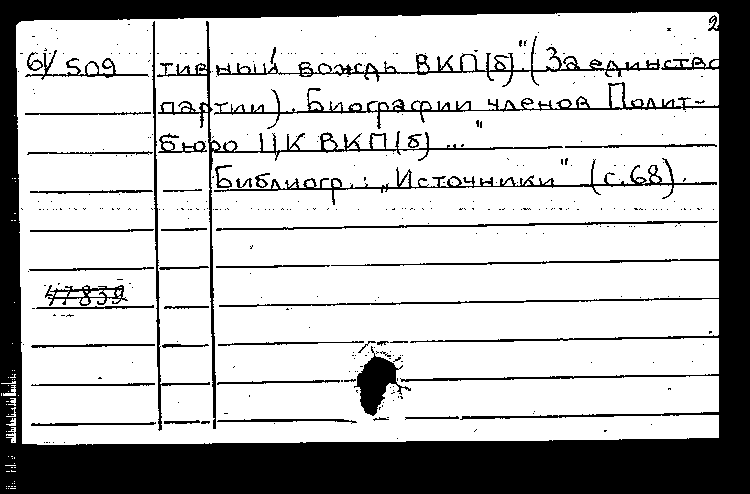 2
б/509 тивный вождь ВКП(б)". (За единство
партии). Биографии членов Полит-
бюро ЦК ВКП(б) ..."
Библиогр.: „Источники" (с. 68).
47839